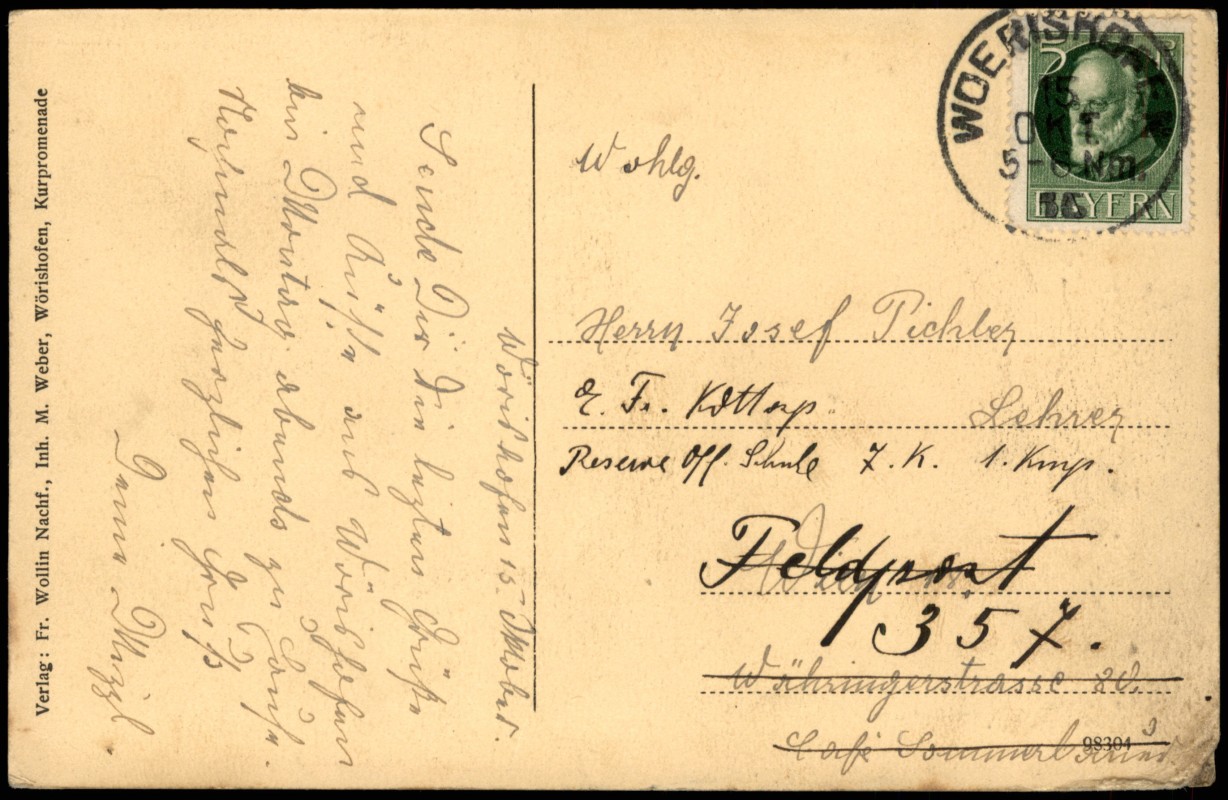 Verlag: Fr. Wollin Nachf., Inh. M. Weber, Wörishofen, Kurpromenade
Wörishofen 15. Oktober.
Sende Dir die letzten Grüße
und Küsse aus Wörishofen
bin Montag abends zu Hause.
Nochmals herzlichen Gruß
Deine Mizzl.
WOERISHOFEN
15. OKT.
5-6 Nm.
5
BAYERN
Wohlg.
Herrn Josef Pichler
Lehrer
Reserve Off. Schule 7. K. 1. Komp.
Feldpost
357.
Wien
Währingerstrasse
Café Sommerbauer
98304